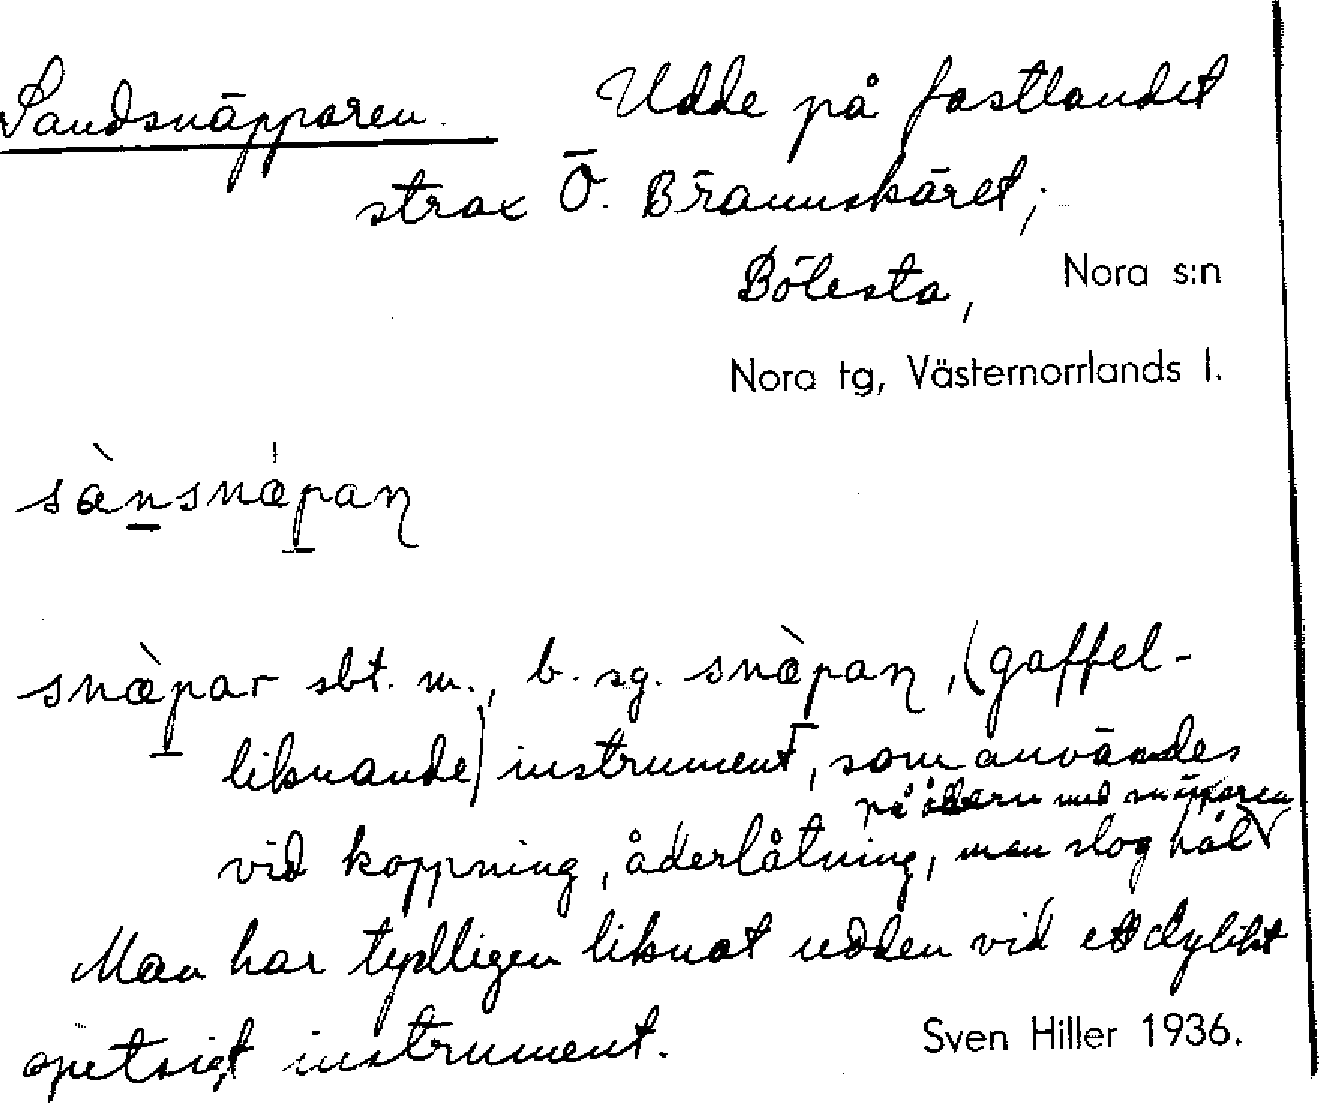 Sandsnäpparen. Udde på fastlandet
strax Ö. Brännskäret;
Bölesta, Nora s:n
Nora tg, Västernorrlands l.
sànsnæpaɳ
snæ̀par sbt. m., b. sg. snæ̀paɳ, (gaffel-
liknande) instrument, som användes
på ådern med snäpparen
vid koppning, åderlåtning, man slog hål
Man har tydligen liknat udden vid ett dylikt
spetsigt instrument. Sven Hiller 1936.